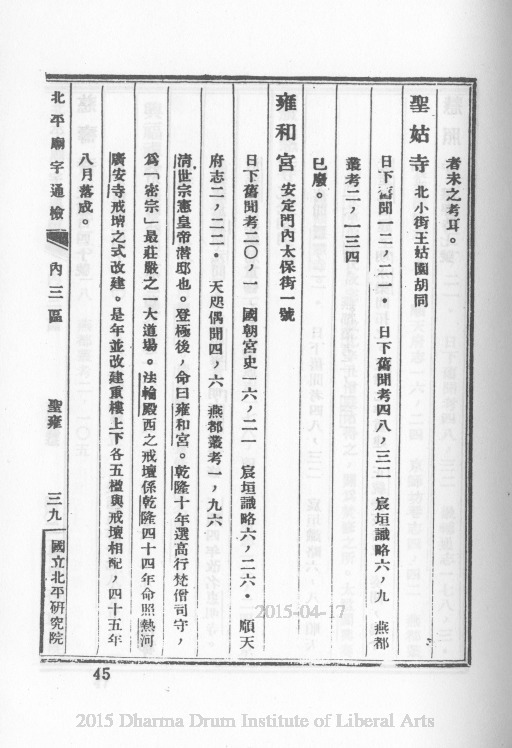 者未之考耳。
聖姑寺 北小街王姑園胡同
日下舊聞一二，二一． 日下舊聞考四八，三二 宸垣識略六，九 燕都
叢考二，一三四
已廢。
雍和宮 安定門內太保街一號
日下舊聞考二〇，一 國朝宮史一六，二一 宸垣識略六，二六． 順天
府志二，二二． 天咫偶聞四，六 燕都叢考一，九六
清世宗憲皇帝潛邸也。登極後，命曰雍和宮。乾隆十年選高行梵僧司守，
為「密宗」最莊嚴之一大道場。法輪殿西之戒壇係乾隆四十四年命照熱河
廣安寺戒壇之式改建。是年並改建重樓上下各五楹與戒壇相配，四十五年
八月落成。
北平廟宇通檢 內三區 聖雍 三九 國立北平研究院
45
2015-04-17
2015 Dharma Drum Institute of Liberal Arts